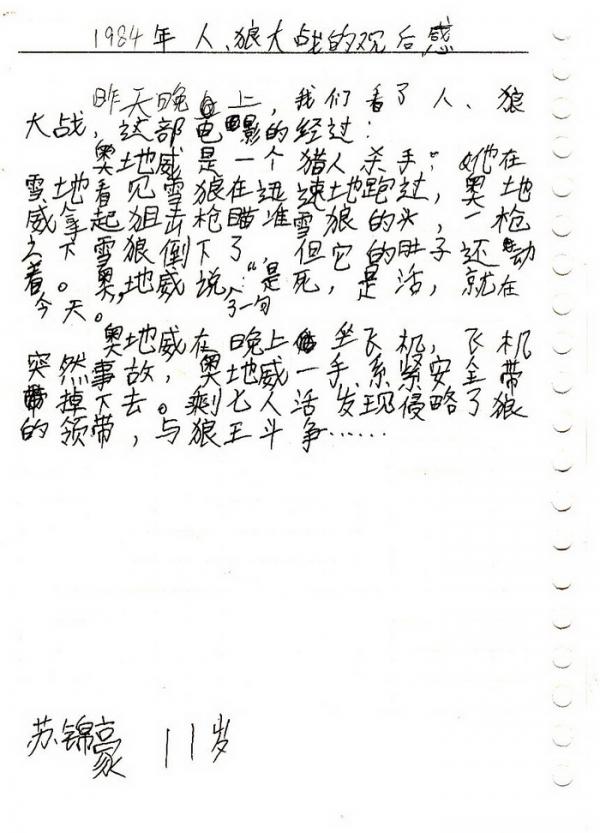 1984年人、狼大战的观后感
昨天晚上，我们看了人、狼
大战，这部电影的经过：
奥地威是一个猎人杀手；她在
雪地看见雪狼在迅速地跑过，奥地
威拿起狙击枪瞄准雪狼的头，一枪
之下雪狼倒下了，但它的肚子还动
着。奥地威说了一句，“是死，是活，就在
今天。”
奥地威在晚上坐飞机，飞机
突然事故，奥地威一手系紧安全带
掉下去。剩七人活发现侵略了狼
的领带，与狼王斗争……
苏锦豪 11岁